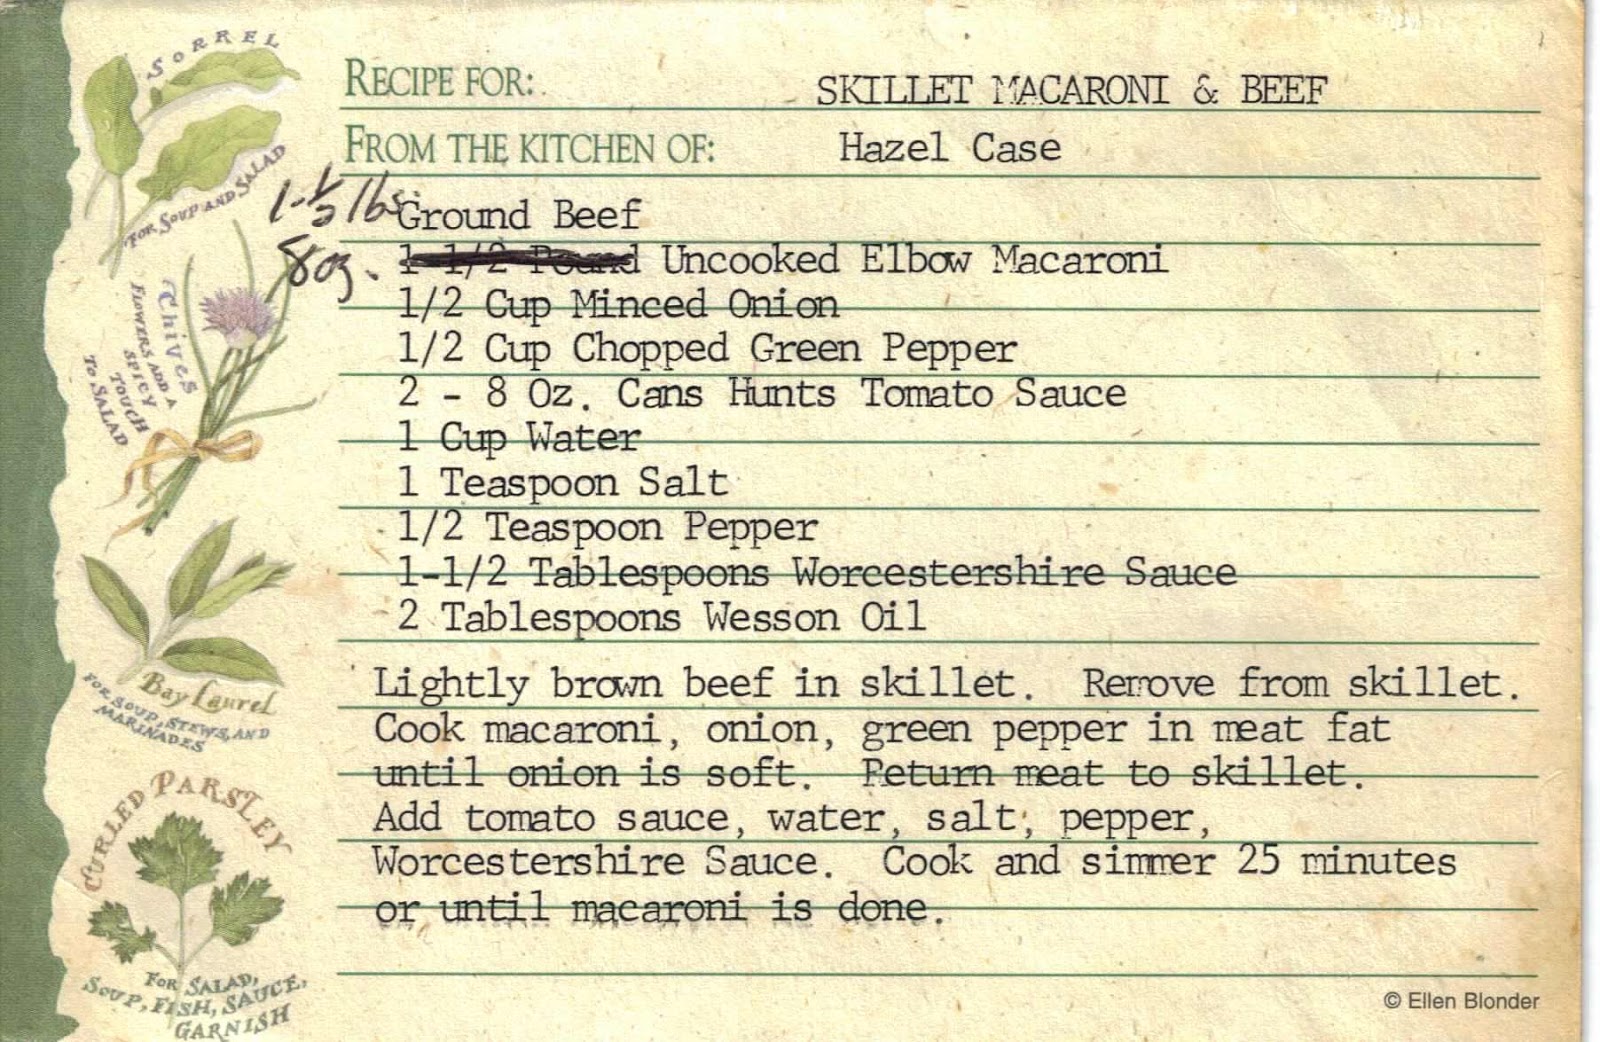 SORREL
FOR SOUP AND SALAD
Chives
FLOWERS ADD A
SPICY
TOUCH
TO SALAD
Bay Laurel
FOR SOUP, STEWS, AND
MARINADES
CURLED PARSLEY
FOR SALAD,
SOUP, FISH, SAUCE,
GARNISH
RECIPE FOR: SKILLET MACARONI & BEEF
FROM THE KITCHEN OF: Hazel Case
1-1/2 lbs Ground Beef
8oz. 1-1/2 Pound Uncooked Elbow Macaroni
1/2 Cup Minced Onion
1/2 Cup Chopped Green Pepper
2 - 8 Oz. Cans Hunts Tomato Sauce
1 Cup Water
1 Teaspoon Salt
1/2 Teaspoon Pepper
1-1/2 Tablespoons Worcestershire Sauce
2 Tablespoons Wesson Oil
Lightly brown beef in skillet. Remove from skillet.
Cook macaroni, onion, green pepper in meat fat
until onion is soft. Return meat to skillet.
Add tomato sauce, water, salt, pepper,
Worcestershire Sauce. Cook and simmer 25 minutes
or until macaroni is done.
© Ellen Blonder